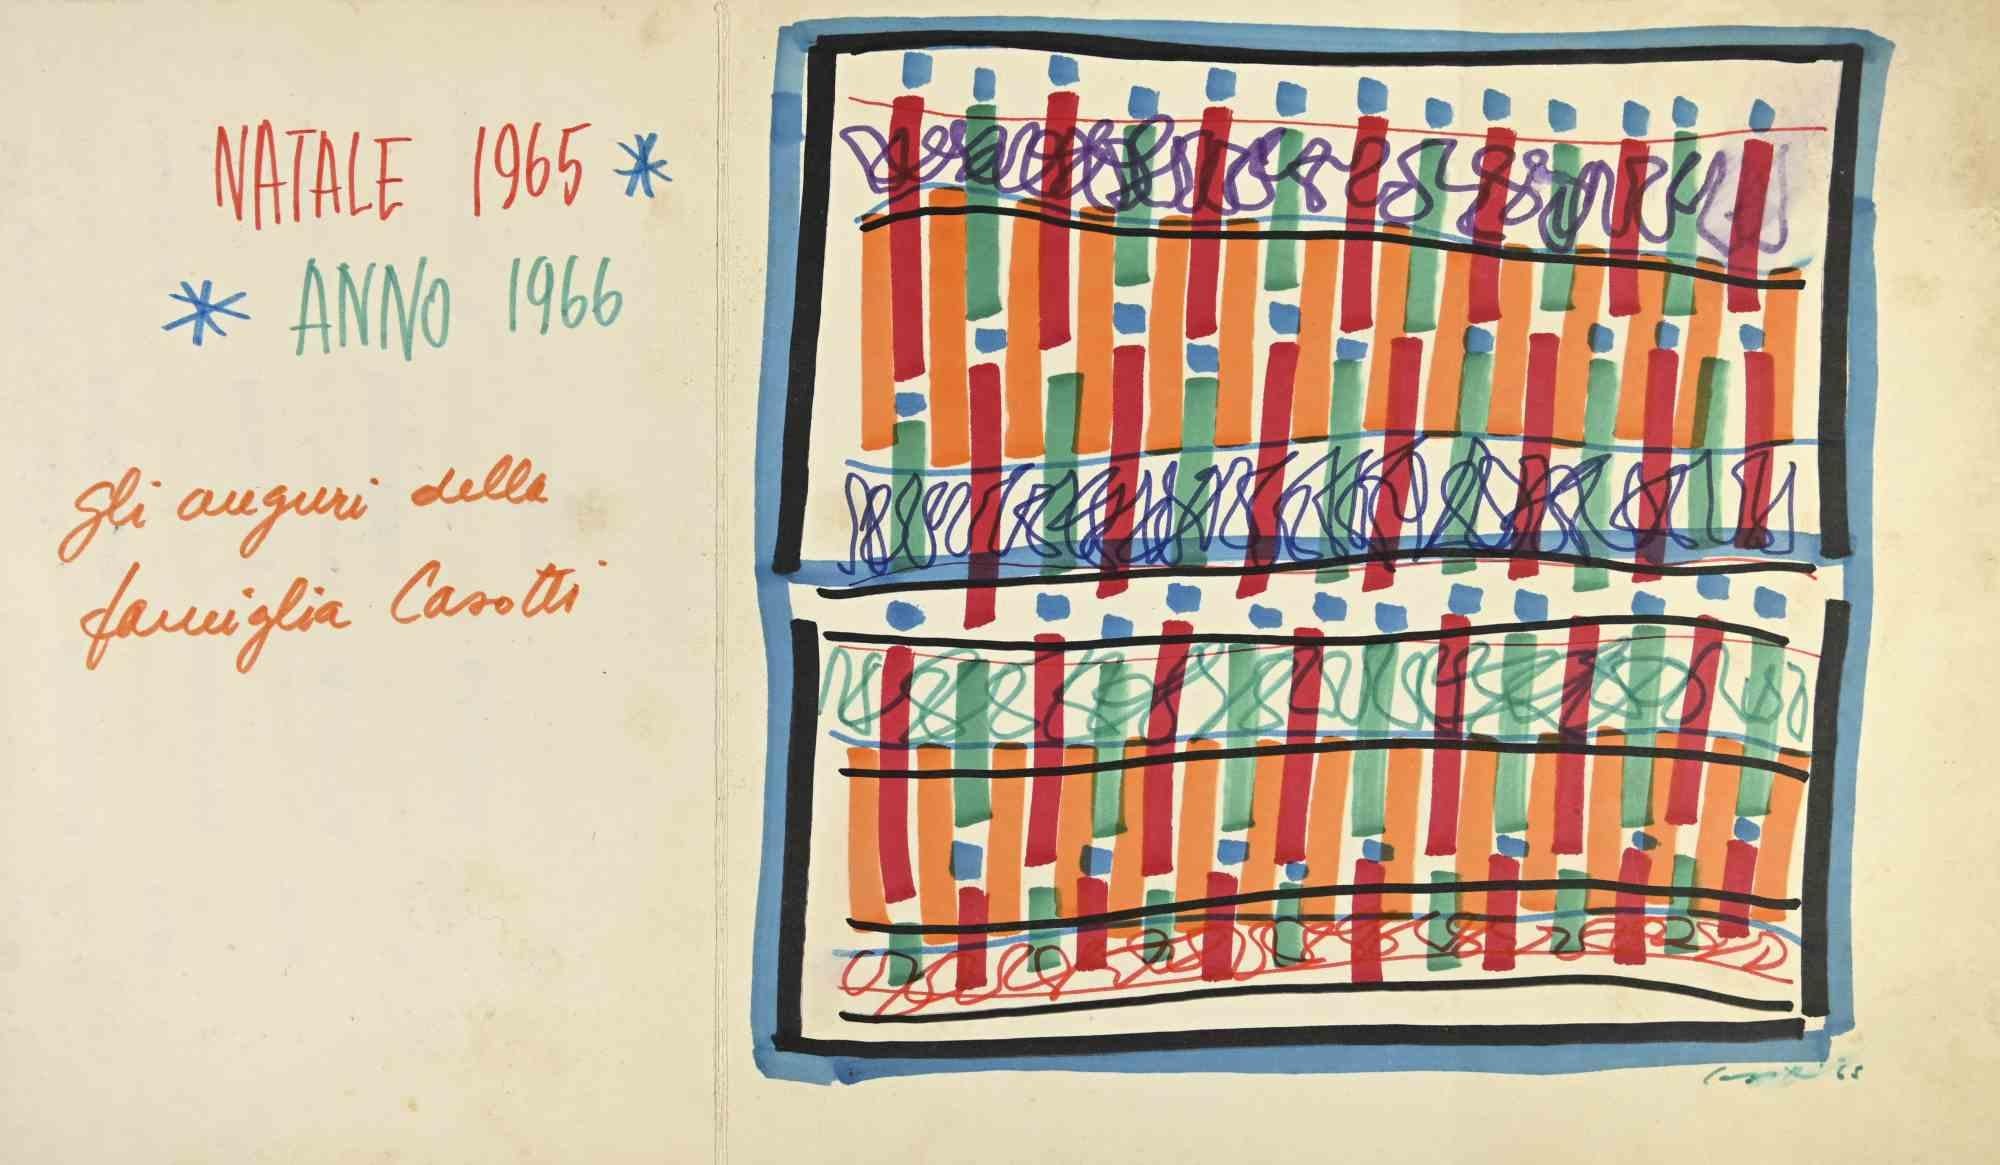 NATALE 1965 *
* ANNO 1966
gli auguri della
famiglia Casotti
Casotti '65